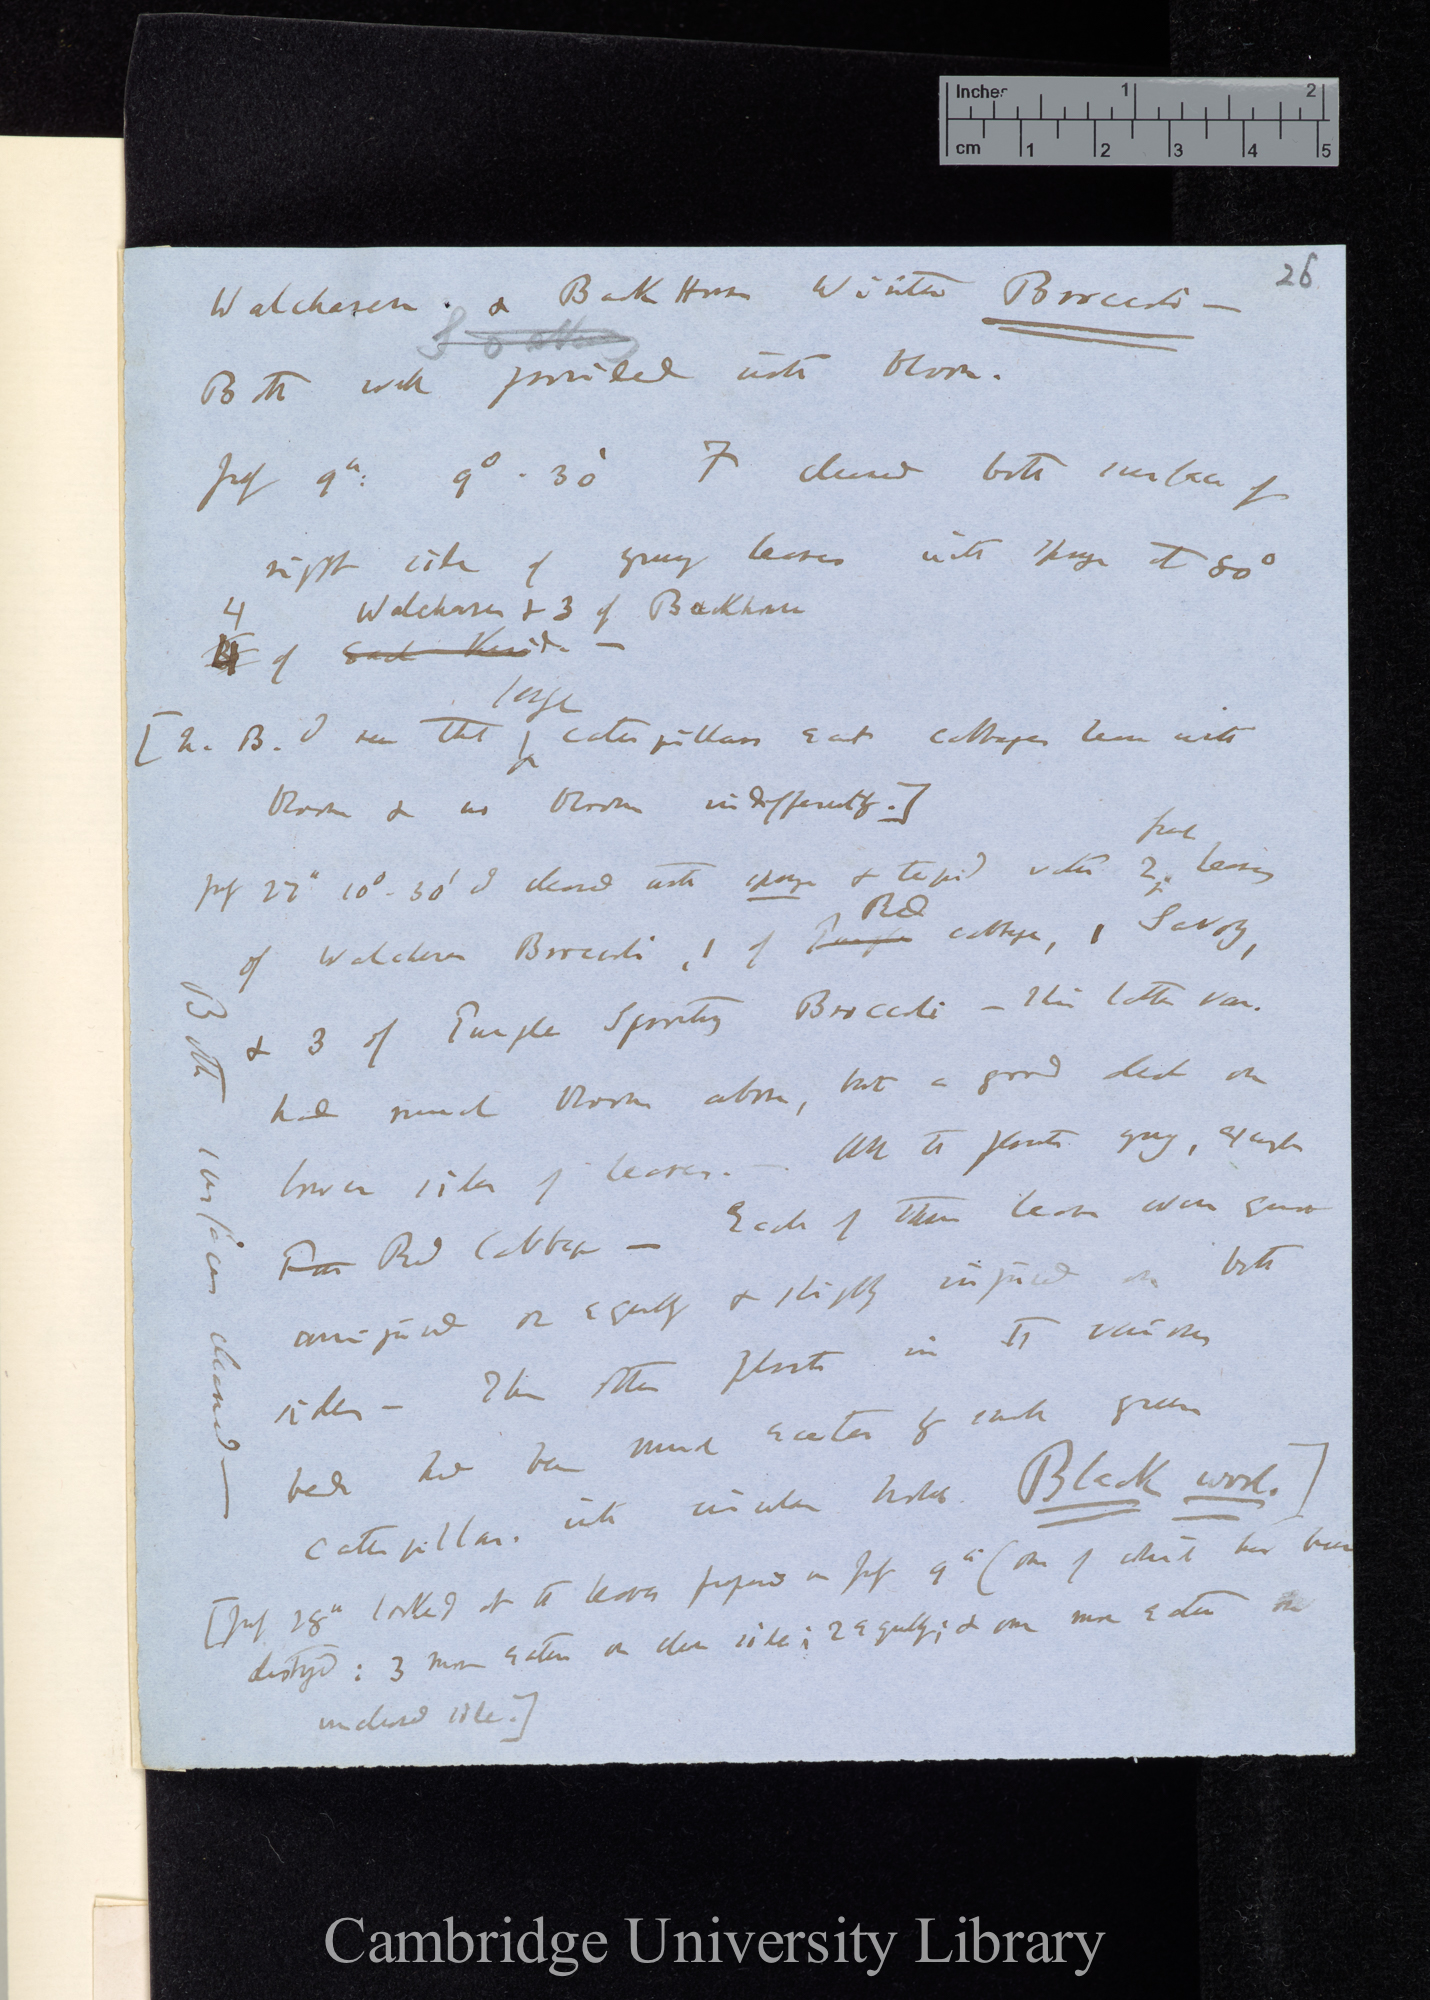 Inches 1 2
cm 1 2 3 4 5
26
Walcheren & BackHouse Winter Broccoli —
Both well provided with bloom.
9th: 9° . 30' F cleaned both surfaces of
right side of young leaves with sponge at 80°
4 Walcheren & 3 of Backhouse
4 of each Kind. —
large
[N. B. I see that caterpillars eat cabbages leaves with
bloom & no bloom indifferently.]
few
27th 10° . 30' I cleaned with sponge & tepid water 2 leaves
Red
of Walcheren Broccoli, 1 of Purple cabbage, 1 Savoy,
& 3 of Purple Sprouting Broccoli — This latter var.
had not much bloom above, but a good deal on
lower sides of leaves. — All the plants young, except
Red Cabbage — Each of these leaves were quite
uninjured or equally & slightly injured on both
sides — These other plants in the various
beds had been much eaten by small green
caterpillar. into circular holes. Black wool.]
[28th looked at the leaves prepared on 9th (one of which has been
destroyed: 3 more eaten on clean side; 2 equally; & one more eaten on
uncleaned side.]
Both surfaces cleaned —
Cambridge University Library